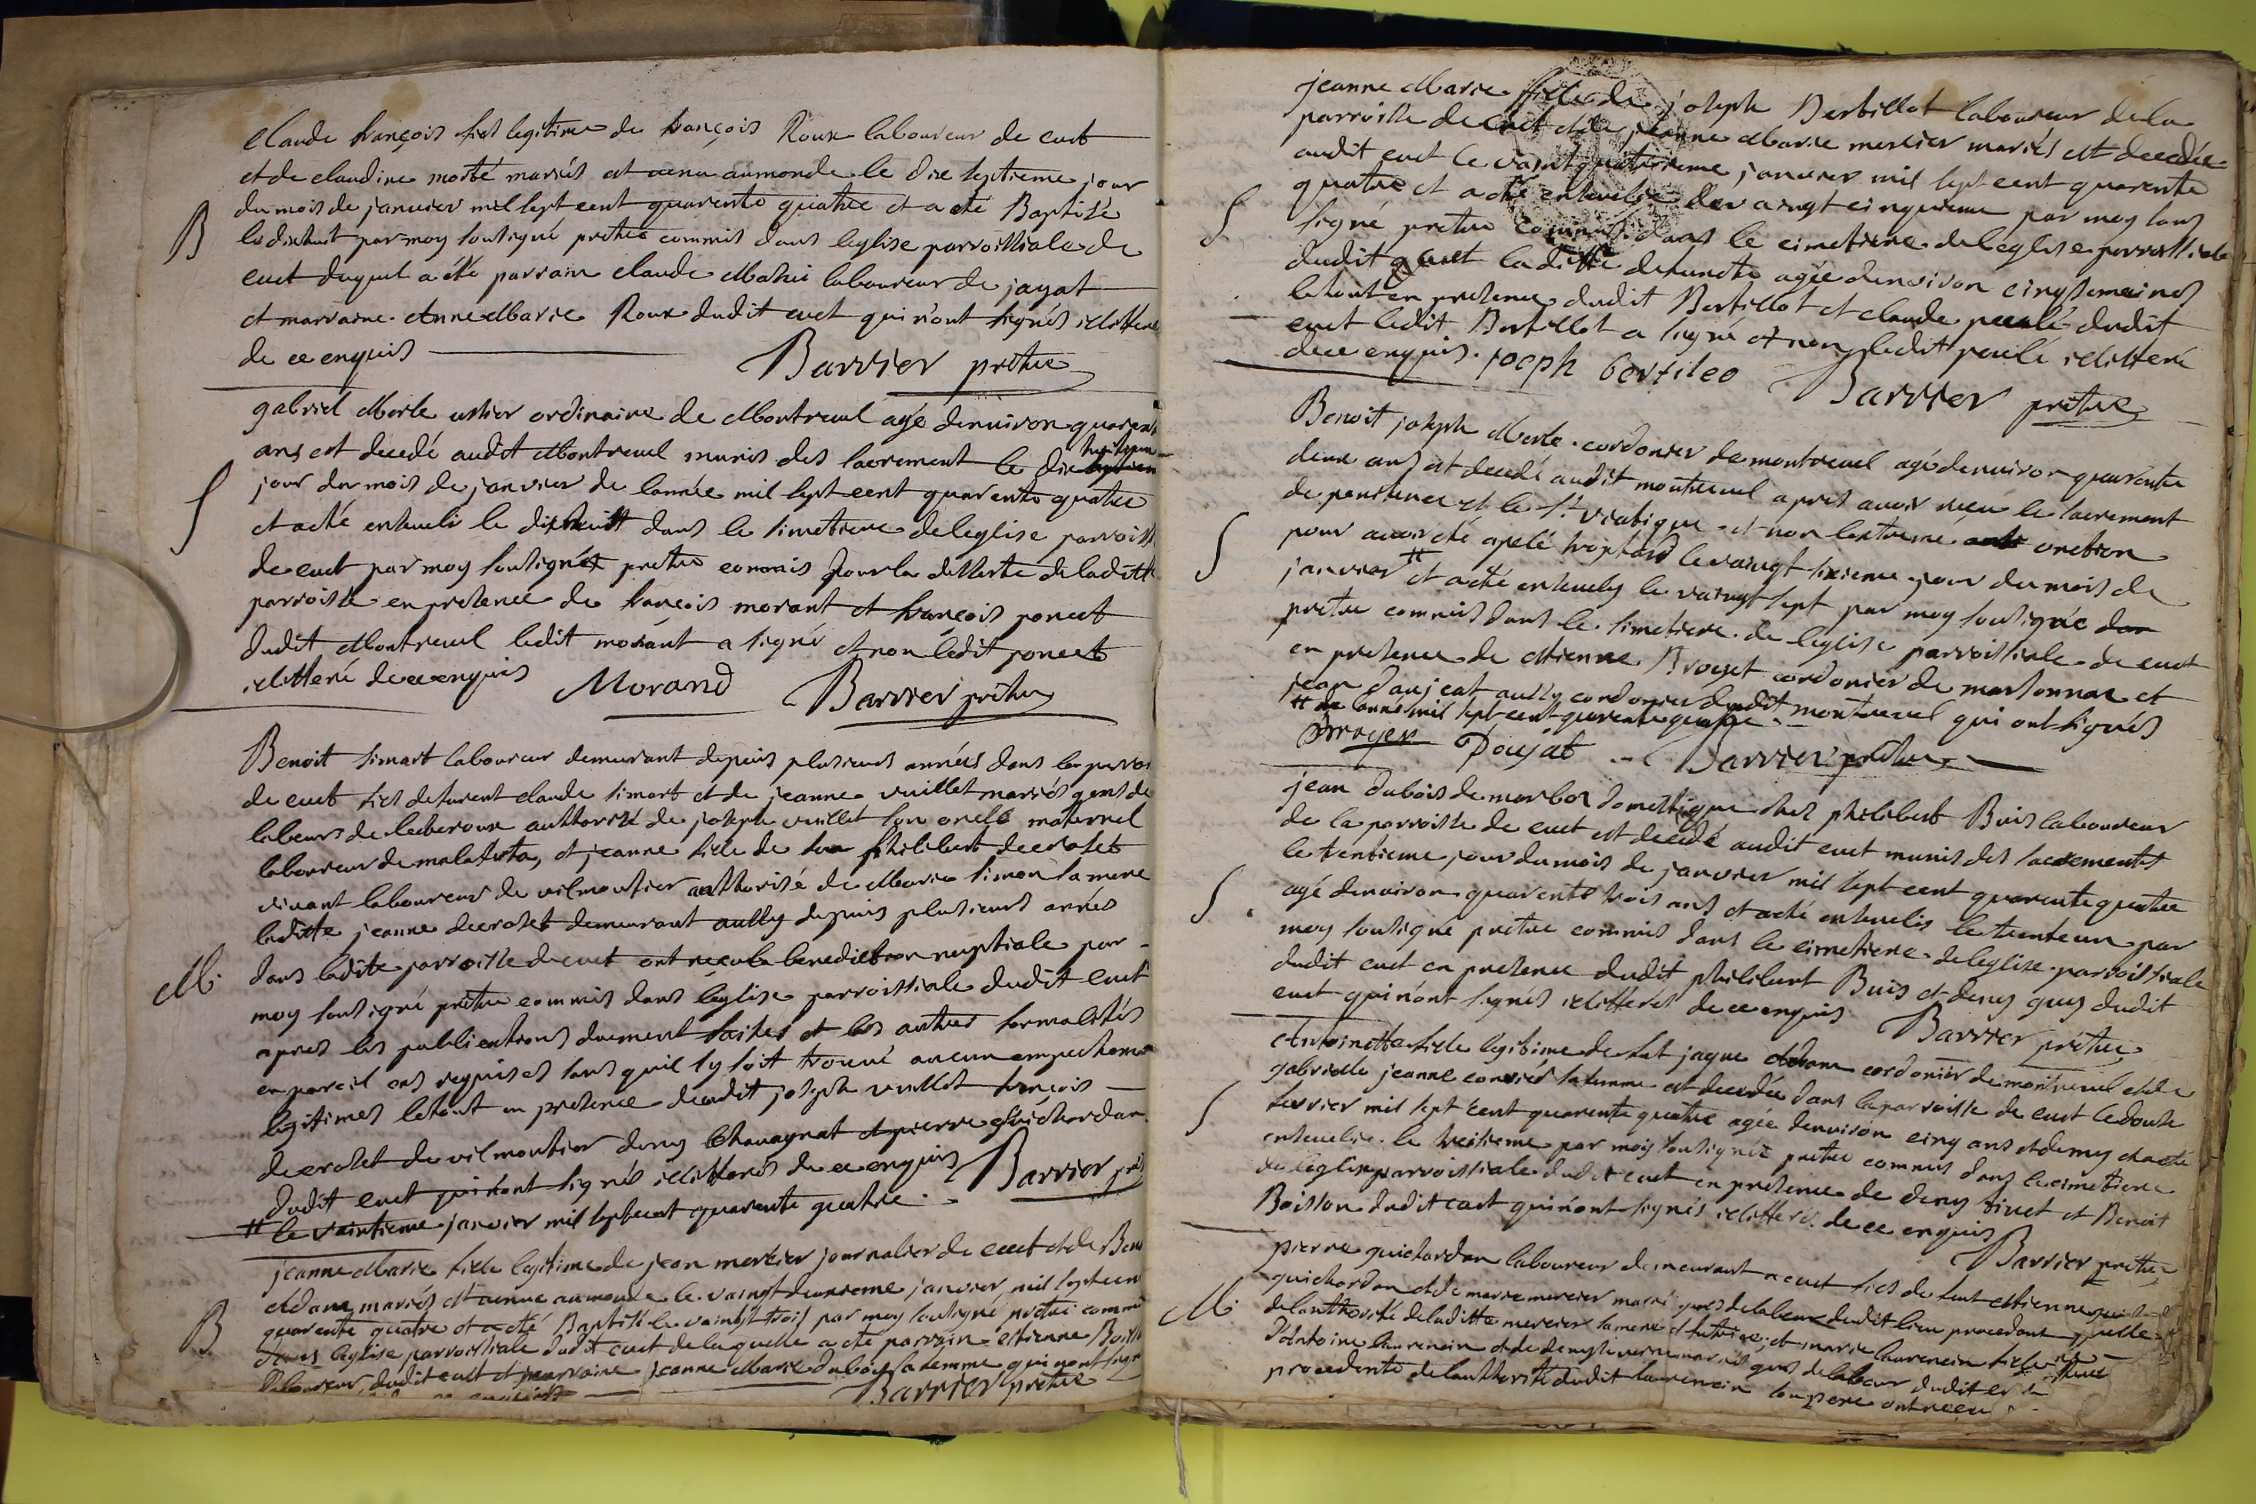 Claude françois fils legitime de françois Roux laboureur de cuet
et de claudine morté mariés est venu aumonde le dix septieme jour
du mois de janvier mil sept cent quarente quatre et a été Baptisé
B
le dixhuit par moy soussigné prêtre commis dans leglise parroissiale de
cuet duquel a été parrain claude Mathis laboureur de jayat
et marraine Anne Marie Roux dudit cuet qui n'ont signés illitterés
de ce enquis
Barrier prêtre
gabriel Merle ussier ordinaire de Montreuel agé denuiron quarente
ans est decedé audit Montreuel munis des sacrement le dix septiem
jour du mois de janvier de lannée mil sept cent quarente quatre
S
et a eté enseueli le dixhuit dans le simetiere de leglise parroiss
de cuet par moy soussigné prêtre commis pour la desserte de ladite
parroisse en presence de françois morant et françois poncet
dudit Montreuel ledit morant a signé et non ledit poncet
illitteré de ce enquis Morand Barrier prêtre
Benoit simart laboureur demeurant depuis plusieurs années dans la parroi
de cuet fils de furent claude simart et de jeanne vuillet mariés gens de
labeur de lecheroux authorisé de joseph vuillet son oncle maternel
laboureur de malafretaz, et jeanne fille de feu philibert decrolet
vivant laboureur de vilmoutier authorisé de Marie simon sa mere
ladite jeanne decrolet demeurant aussy depuis plusieurs années
M.
dans ladite parroisse de cuet ont reçu la benediction nuptiale par
moy soussigné prêtre commis dans leglise parroissiale dudit cuet
apres les publications duement faites et les autres formalités
en pareil cas requises sans quil sy soit trouvé aucun empechemen
legitimes letout en presence dudit joseph vuillet françois
decrolet de vilmoutier denys Chavagnat et pierre guichardan
dudit cuet qui n'ont signés illitterés de ce enquis Barrier prê
# le vaintieme janvier mil sept cent quarente quatre.
jeanne Marie fille legitime de jean mercier journalier de cuet et de Ben
Adam mariés est venue au monde le vaingt deuxieme janvier mil sept cen
B
quarente quatre et a eté Baptisé le vaingt trois par moy soussigné prêtre comm
dans leglise parroissiale dudit cuet de laquelle a été parrain etienne Boiss
laboureur dudit cuet et marraine jeanne Marie dubois sa femme qui n'ont sign
Barrier prêtre
jeanne Marie fille de joseph Bertillot laboureur de la
parroisse de cuet et de jeanne Marie mercier mariés est decedée
audit cuet le vaingt quatrieme janvier mil sept cent quarente
quatre et a eté enseuelie le vaingt cinquieme par moy sous
S
signé prêtre commis dans le cimetiere de leglise parroissiale
dudit cuet ladite defuncte agée denuiron cinq semaines
letout en presence dudit Bertillot et claude peculé dudit
cuet ledit Bertillot a signé et non ledit peculé illitteré
de ce enquis. joeph bertileo Barrier prêtre
Benoit joseph Merle cordonier de montreuel agé denuiron quarente
deux ans est decedé audit montreuel apres avoir reçu le sacrement
de penitence et le st viatique et non lextreme onction
S
pour avoir été apelé trop tard le vaingt sixieme jour du mois de
janvier # et a eté enseuely le vaingt sept par moy soussigné
prêtre commis dans le simetiere de leglise parroissiale de cuet
en presence de etienne Broyet cordonier de marsonnas et
jean Poujat aussy cordonier dudit montreuel qui ont signés
# de lanné mil sept cent quarente quatre
Broyer Poujat Barrier prêtre
jean dubois de marboz domestique chez philibert Buis laboureur
de la parroisse de cuet est decedé audit cuet munis des sacrements
le trentieme jour du mois de janvier mil sept cent quarente quatre
S
agé denuiron quarente trois ans et a eté enseuelis le trente un par
moy soussigné prêtre commis dans le cimetiere de leglise parroissiale
dudit cuet en presence dudit philibert Buis et denys guy dudit
cuet qui n'ont signés illitterés de ce enquis Barrier prêtre
Antoinette fille legitime de feu jaque Adam cordonier de montreuel et de
gabrielle jeanne convier sa femme est decedée dans la parroisse de cuet le douze
S
fevrier mil sept cent quarente quatre agée denuiron cinq ans et demy et a eté
enseuelie le treizieme par moy soussigné prêtre commis dans le cimetiere
de leglise parroissiale dudit cuet en presence de denys tinet et Benoit
Boisson dudit cuet qui n'ont signés illitterés de ce enquis
Barrier prêtre
pierre guichardan laboureur demeurant a cuet fils de feu etienne
M.
guichardan et de marie mercier mariés gens de labeur dudit lieu procedant
de lauthorité de ladite mercier sa mere et tutrice, et marie laurencin fille
dAntoine laurencin et de denyse verne mariés gens de labeur dudit
procedente de lauthorité dudit laurencin son pere ont reçu